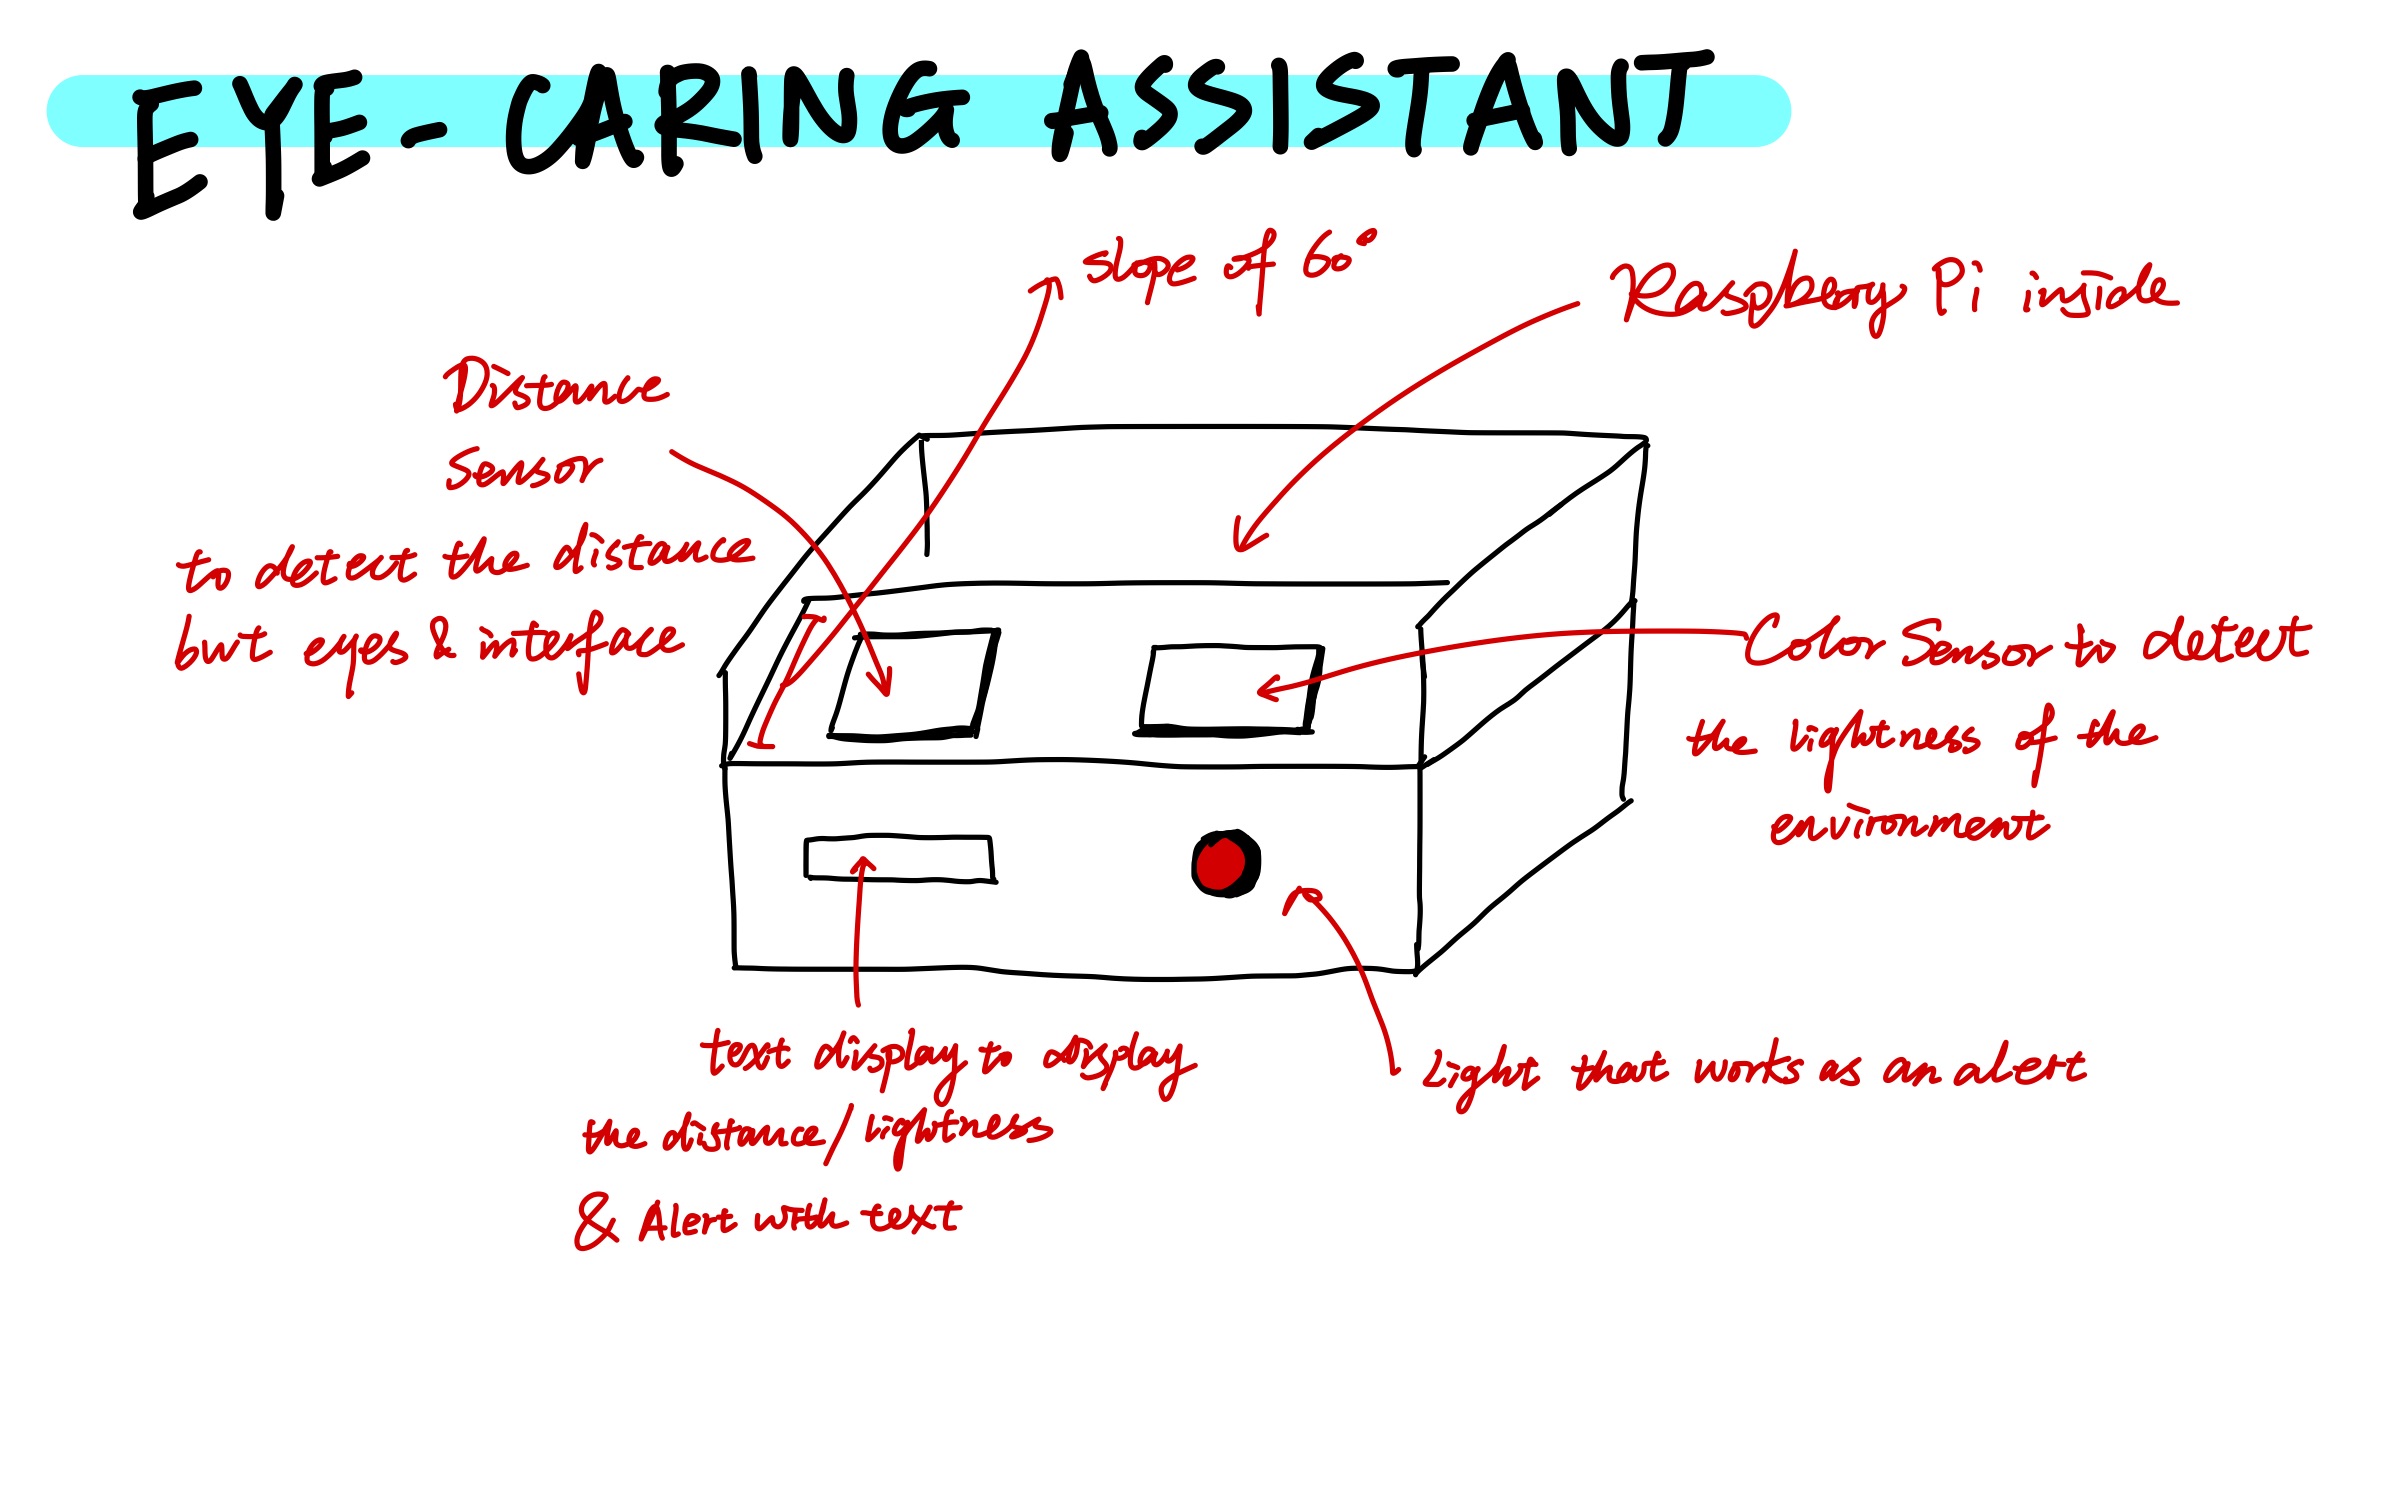 EYE-CARING ASSISTANT
slope of 60°
Raspberry Pi inside
Distance
sensor
to detect the distance
but eyes & interface
Color Sensor to detect
the lightness of the
environment
text display to display
the distance/lightness
& Alert with text
Light that works as an alert